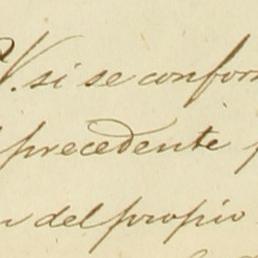 V. si se confor
precedente
del propio